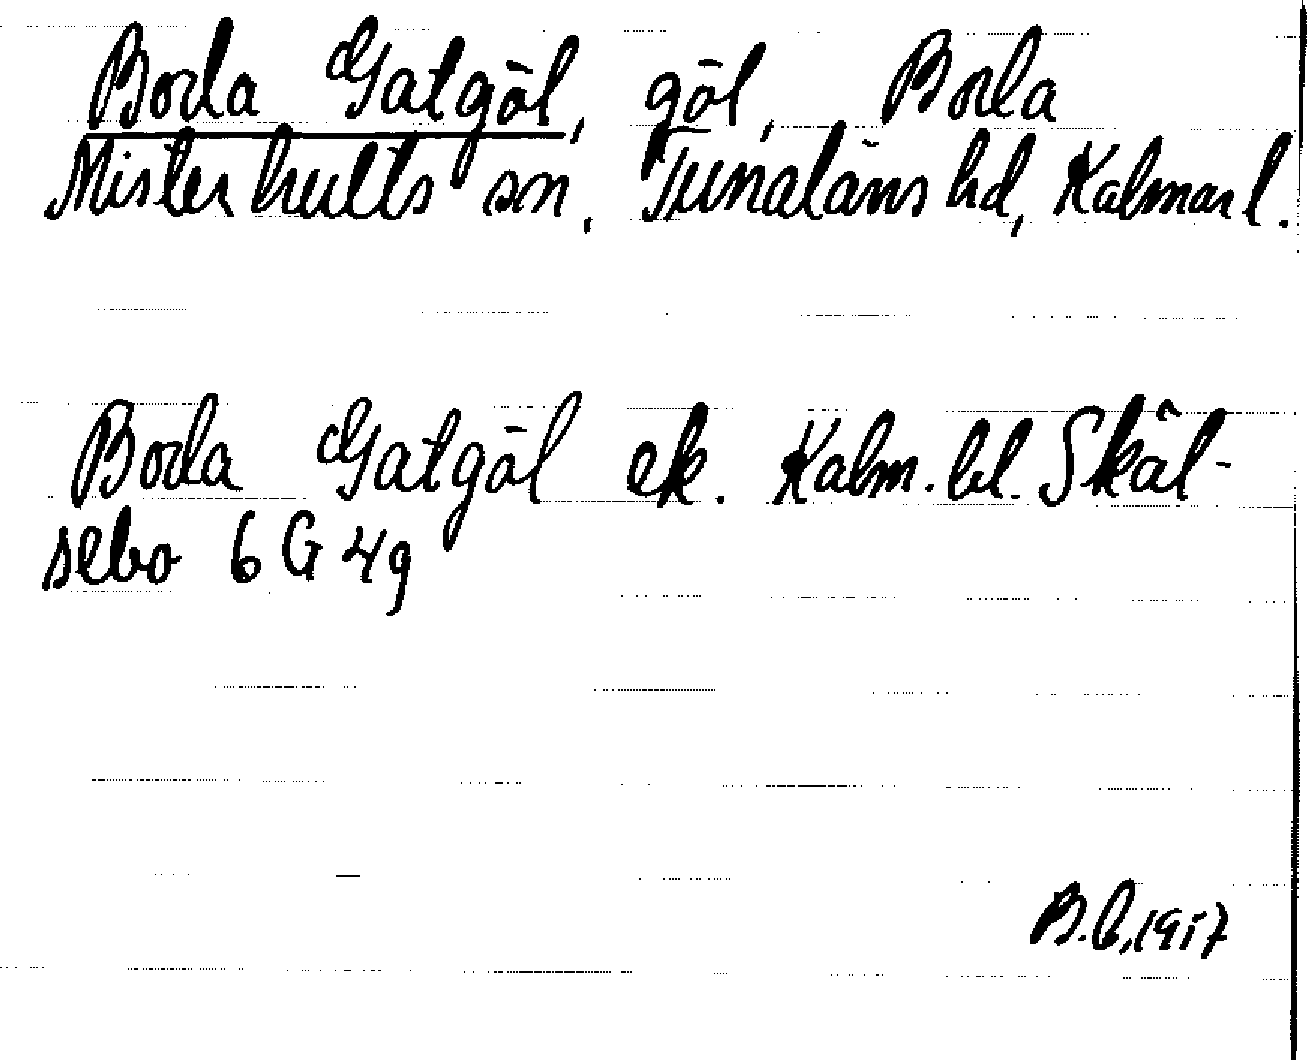 Boda Gatgöl, göl, Boda
Misterhults sn. Tunaläns hd, Kalmar l.
Boda Gatgöl ek. Kalm. bl. Skäl-
sebo 6 G 4g
B.C, 1917